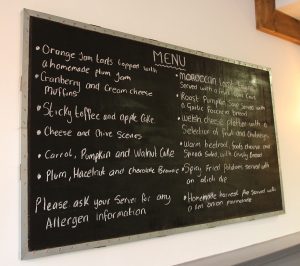 MENU
• Orange Jam tarts topped with
a homemade plum Jam
• Cranberry and cream cheese
Muffins
• Sticky toffee and apple Cake
• Cheese and Chive Scones
• Carrot, Pumpkin and Walnut Cake
• Plum, Hazelnut and chocolate Brownie
Please ask your Server for any
Allergen information
• Moroccan
Served with a fruit
• Roast Pumpkin Soup Served with
a Garlic focaccia bread
• Welsh cheese platter with a
Selection of fruit and chutneys
• Warm beetroot, feta cheese and
Spinach Salad with crusty bread
• Spicy Fried Potatoes served with
an dip
• Homemade harvest Pie Served with
a onion marmalade